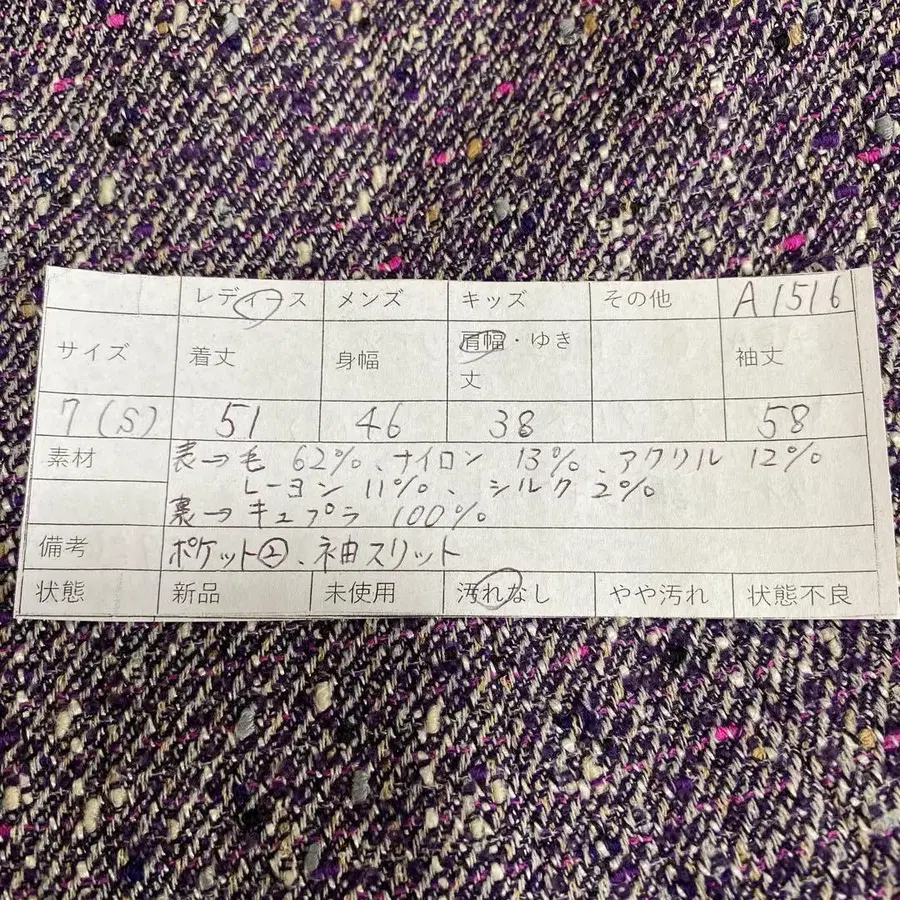 レディース メンズ キッズ その他 A1516
サイズ 着丈 身幅 肩幅・ゆき丈 袖丈
7(S) 51 46 38 58
素材 表→毛 62%、ナイロン 13%、アクリル 12%
レーヨン 11%、シルク 2%
裏→キュプラ 100%
備考 ポケット②、袖スリット
状態 新品 未使用 汚れなし やや汚れ 状態不良